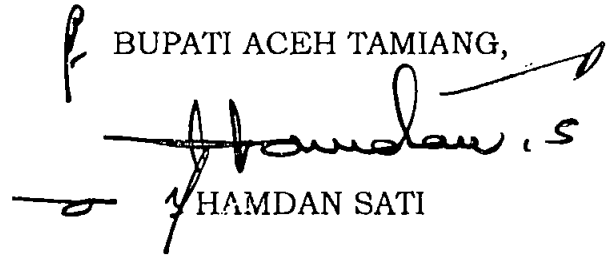 BUPATI ACEH TAMIANG,
Hamdan, S
HAMDAN SATI